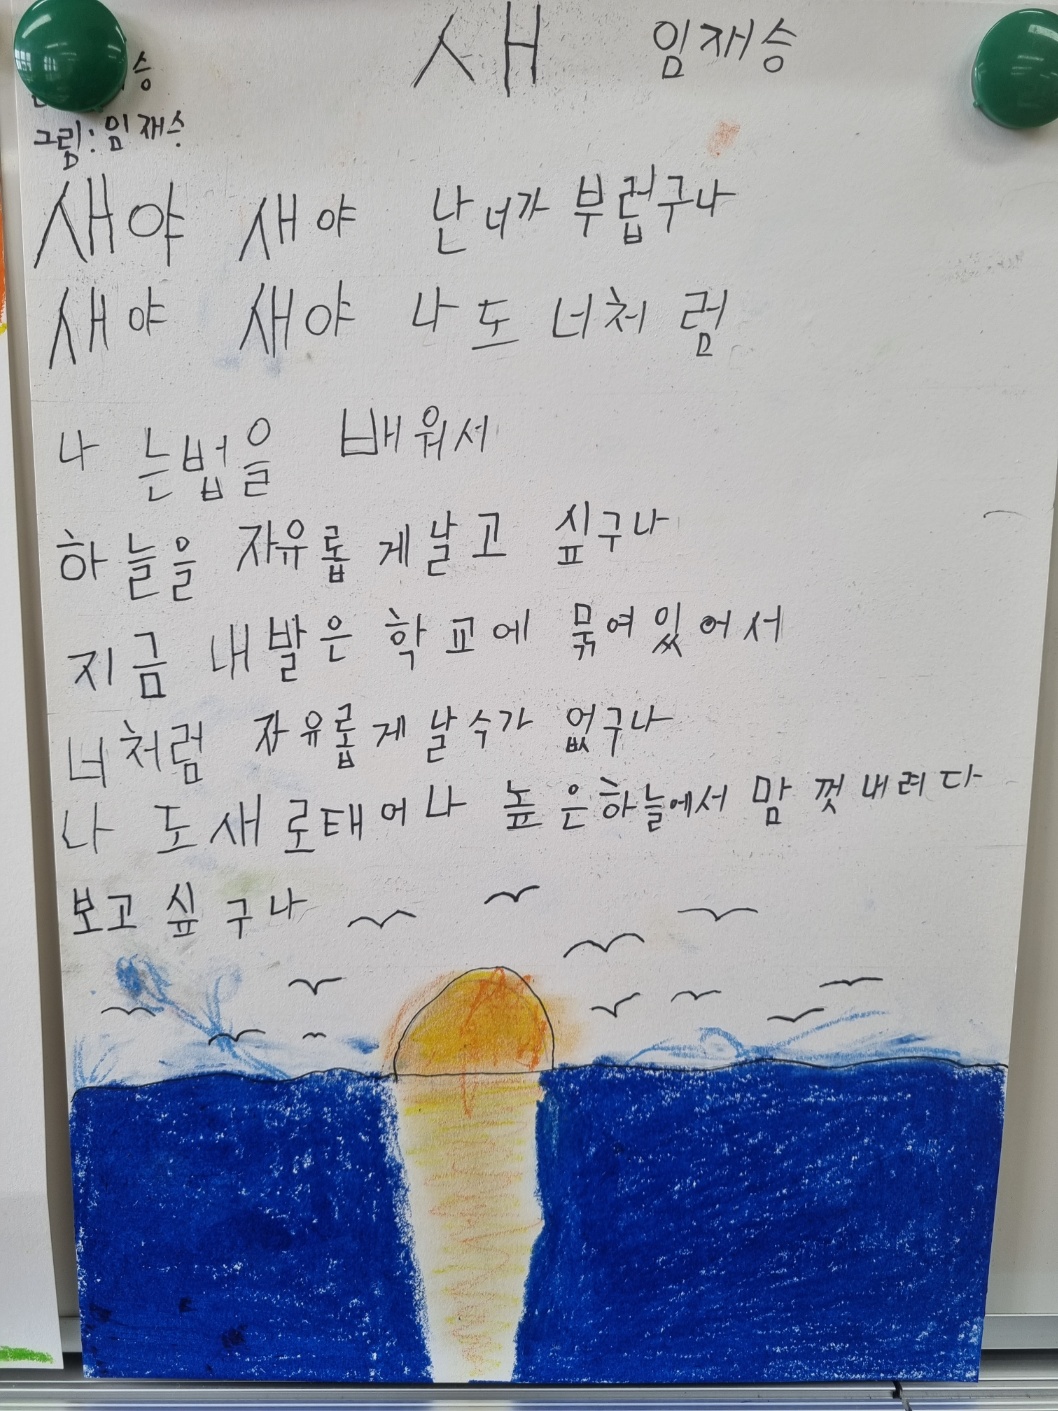 새 임재승
승
그림:임재승
새야 새야 난 너가 부럽구나
새야 새야 나도 너처럼
나는법을 배워서
하늘을 자유롭게날고 싶구나
지금 내발은 학교에 묶여있어서
너처럼 자유롭게 날수가 없구나
나도새로태어나 높은하늘에서 맘껏내려다
보고싶구나